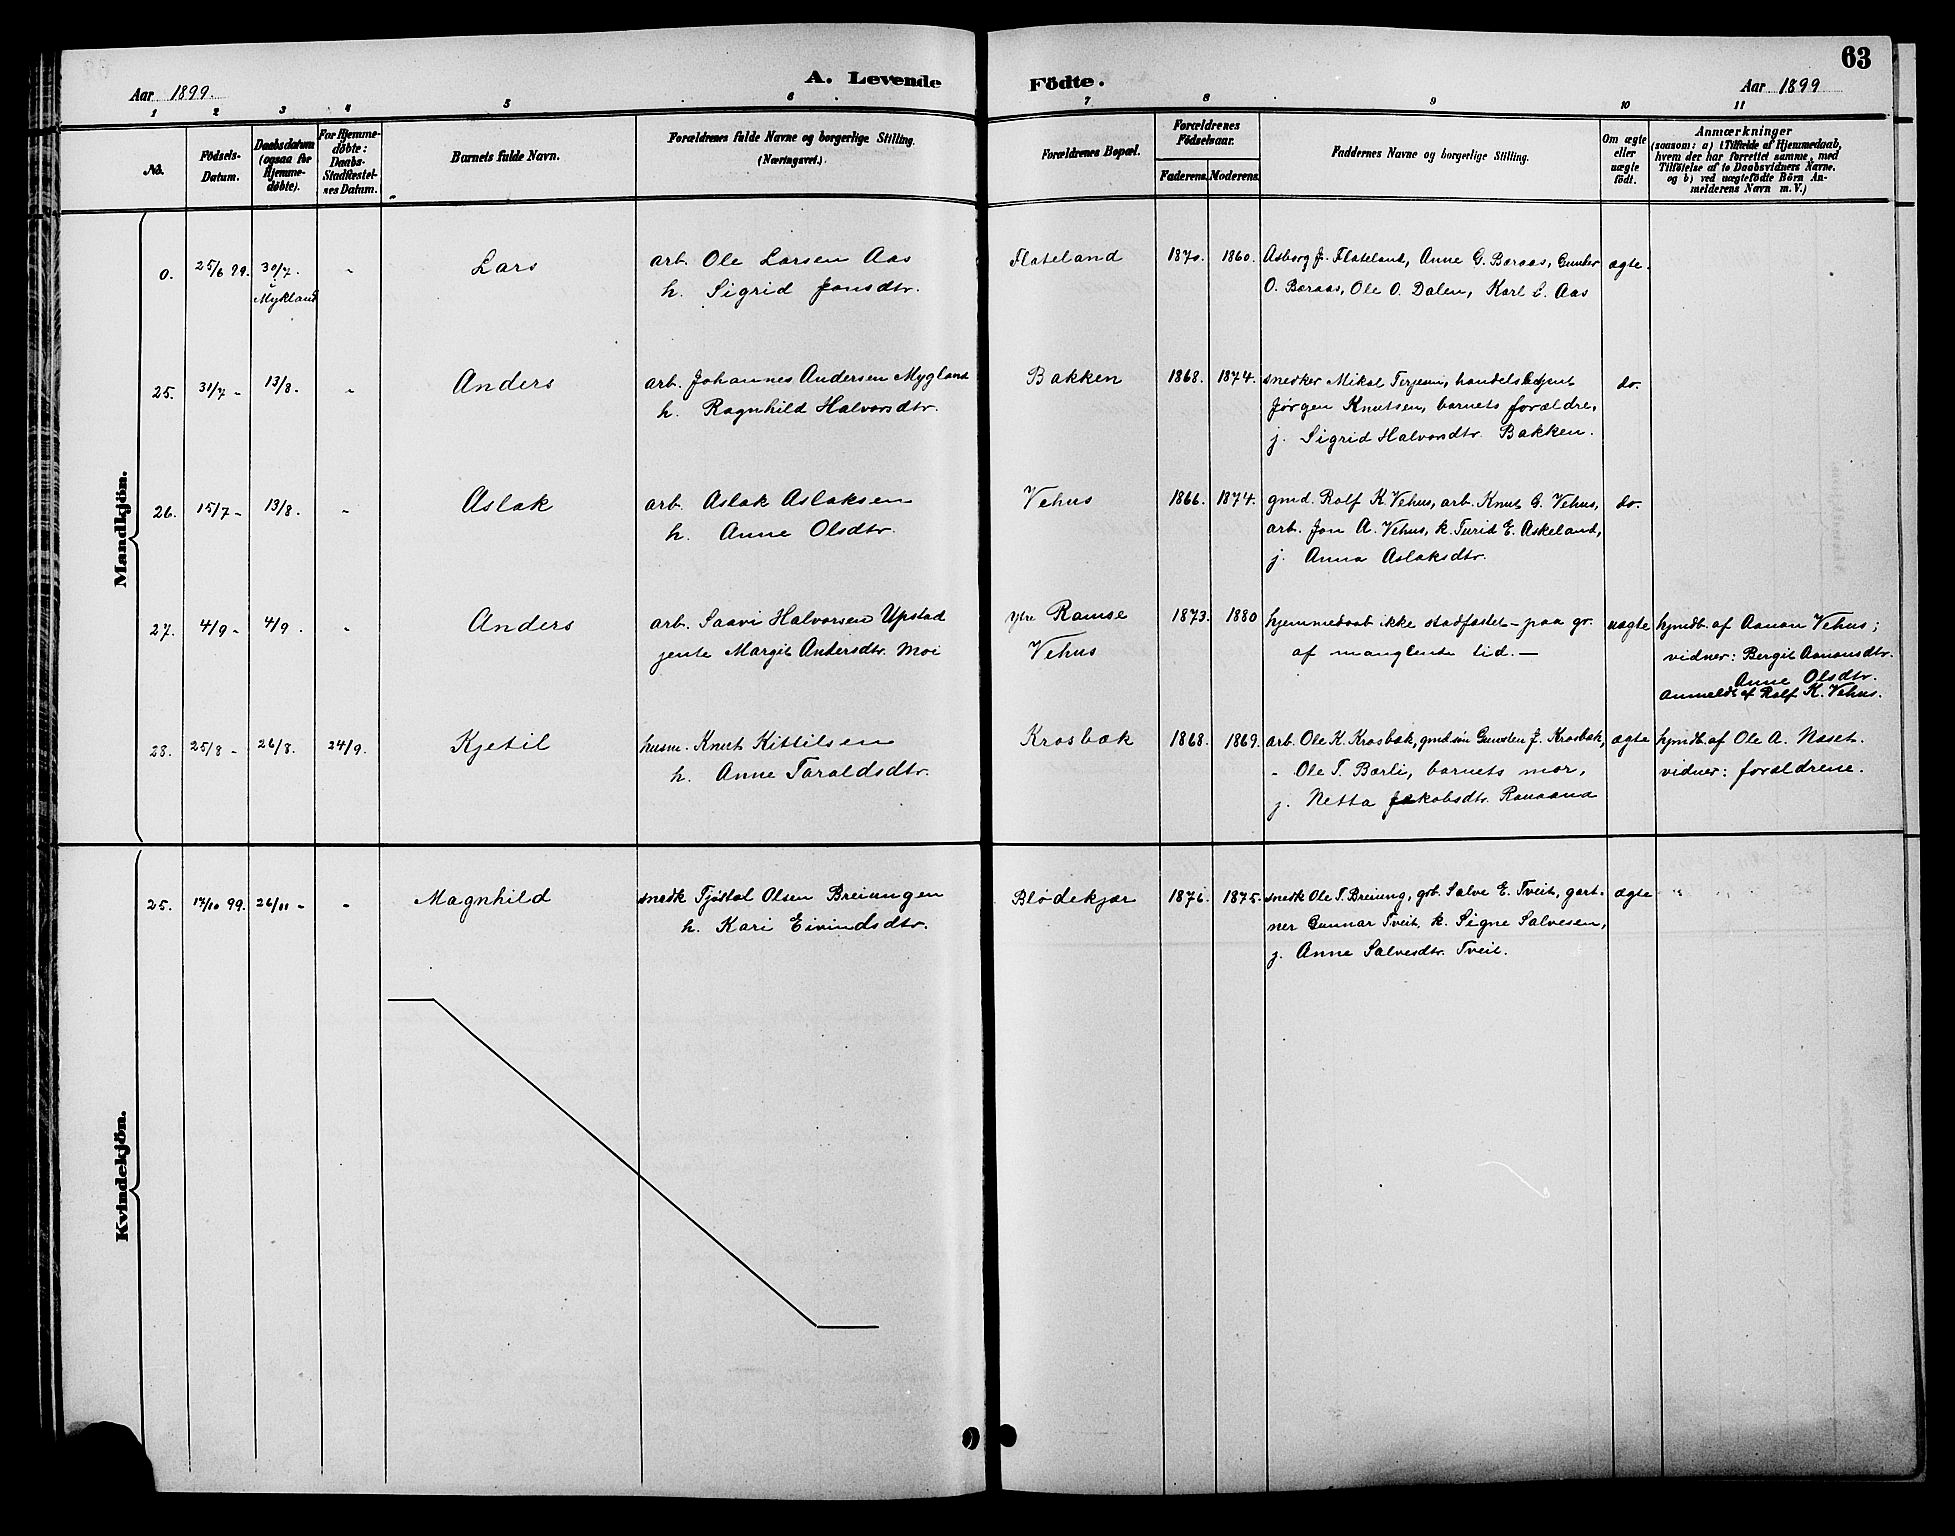 63
A. Levende Födte.
Aar 1899.
Aar 1899
1 2 3 4 5 6 7 8 9 10 11
No.
Födsels-Datum.
Daabsdatum (ogsaa for Hjemmedöbte).
For Hjemmedöbte: Daabs-Stadfæstelses Datum.
Barnets fulde Navn.
Forældrenes fulde Navne og borgerlige Stilling. (Næringsvei.)
Forældrenes Bopæl.
Forældrenes Födselsaar.
Faderens. Moderens.
Faddernes Navne og borgerlige Stilling.
Om ægte eller uægte födt.
Anmærkninger
(saasom: a) i Tilfælde af Hjemmedaab,
hvem der har forrettet samme, med
Tilföielse af to Daabsvidners Navne.
og b) ved uægtefödte Börn An-
melderens Navn m. V.)
Mandkjön.
0. 25/6 99. 30/7. i Mykland " Lars arb. Ole Larsen Aas Flateland 1870. 1860. Asborg J. Flateland, Anne G. Bæraas, Gunder ægte.
h. Sigrid Jonsdtr. O. Bæraas, Ole O. Dalen, Karl L. Aas
25. 31/7 - 13/8. " Anders arb. Johannes Andersen Mygland Bakken 1868. 1874. snedker Mikal Terjesen, handelsbetjent do.
h. Ragnhild Halvorsdtr. Jørgen Knutsen, barnets forældre,
j. Sigrid Halvorsdtr. Bakken.
26. 15/7 - 13/8. " Aslak arb. Aslak Aslaksen Vehus 1866. 1874. gmd. Rolf K Vehus, arb. Knut G. Vehus, do.
h. Anne Olsdtr. arb. Jon A. Vehus, k. Turid E. Askeland,
j. Anna Aslaksdtr.
27. 4/9 - 4/9. " Anders arb. Saavi Halvorsen Upstad Ytre Ramse 1873. 1880 hjemmedaab ikke stadfæstet - paa gr. uægte hjmdb. af Aanon Vehus;
jente Margit Andersdtr. Moi Vehus af manglende tid. - vidner: Bergit Aanonsdtr.
Anne Olsdtr.
Anmeldt af Rolf K. Vehus.
28. 25/8 - 26/8. 24/9. Kjetil husm. Knut Kittilsen Krosbæk 1868. 1869. arb. Ole K. Krosbæk, gmdsøn Gunsten J. Krosbæk, ægte hjmdb. af Ole A. Næset.
h. Anne Taraldsdtr. - Ole T. Bærli, barnets mor, vidner: forældrene.
j. Netta Jakobsdtr. Ranaana
Kvindekjön.
25. 17/10 99. 26/11 - " Magnhild snedk Tjøstøl Olsen Breiungen Blødekjær 1876. 1875. snedk Ole T. Breiung, grb. Salve E. Tveit, gart- ægte " "
h. Kari Eivindsdtr. ner Gunnar Tveit, k. Signe Salvesen,
j. Anne Salvesdtr. Tveit.